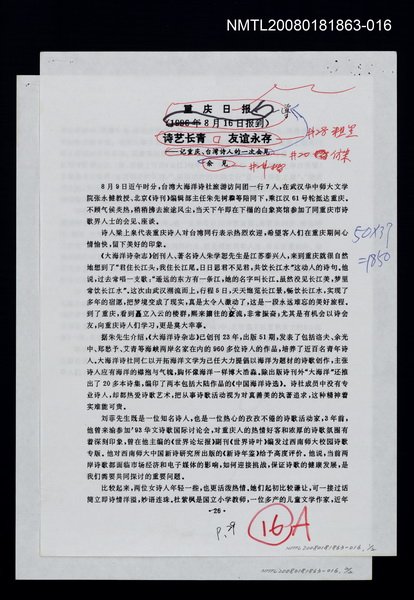 NMTL20080181863-016
重庆日报
(1996年8月16日报到)
诗艺长青 友谊永存
—记重庆、台湾诗人的一次会见
会见
50×37
=1850
8月9日近午时分,台湾大海洋诗社旅游访问团一行7人,在武汉华中师大文学
院张永健教授、北京《诗刊》编辑部主任朱先树等陪同下,乘江汉61号轮抵达重庆。
不顾气候炎热,稍稍拂去旅途风尘,当天下午即在下榻的白象宾馆参加了同重庆市诗
歌界人士的会见、座谈。
诗人梁上泉代表重庆诗人对台湾同行表示热烈欢迎,希望客人们在重庆期间心
情愉快,留下美好的印象。
《大海洋诗杂志》创刊人、著名诗人朱学恕先生是江苏泰兴人,来到重庆就很自然
地想到了“君住长江头,我住长江尾。日日思君不见君,共饮长江水”这动人的诗句。他
说,过去常唱一支歌:“遥远的东方有一条江,她的名字叫长江。虽然没见长江美,梦里
常饮长江水。”这次由武汉溯流而上,行程5日,天天饱览长江景,畅饮长江水,实现了
多年的宿愿,把梦境变成了现实,真是太令人激动了,这是一段永远难忘的美好旅程。
到了重庆,看到矗立入云的楼群,熙来攘往的
,非常振奋;尤其是有机会以诗会
友,向重庆诗人们学习,更是莫大幸事。
据朱先生介绍,《大海洋诗杂志》已创刊23年,出版51期,发表了包括洛夫、余光
中、郑愁予、艾青等海峡两岸名家在内的960多位诗人的作品,培养了近百名青年诗
人。大海洋诗社同仁以开拓海洋文学为己任大力提倡以海洋为题材的诗歌创作,主张
诗人应有海洋的雄浑与气魄,胸怀像海洋一样博大浩淼。除出版诗刊外“大海洋”还推
出了20多本诗集,编印了两本包括大陆作品的《中国海洋诗选》。诗社成员中没有专
业诗人,却都热爱诗歌艺术,把从事诗歌活动视为对真善美的执著追求,这种精神着
实难能可贵。
刘菲先生既是一位知名诗人,也是一位热心的孜孜不倦的诗歌活动家,3年前,
他曾来渝参加’93华文诗歌国际讨论会,对重庆人的热情好客和浓厚的诗歌氛围有
着深刻印象,曾在他主编的《世界论坛报》副刊《世界诗叶》编发过西南师大校园诗歌
专版。他对西南师大中国新诗研究所出版的《新诗年鉴》给予高度评价。他说,当前两
岸诗歌都面临市场经济和电子媒体的影响,如何迎接挑战,保证诗歌的健康发展,是
我们需要共同探讨的重要问题。
比较起来,两位女诗人年轻一些,也更活泼热情。她们起初比较谦让,可一接过话
筒立即诗情洋溢,妙语连珠。杜紫枫是国立小学教师,一位多产的儿童文学作家,近年
·26·
P.29
16A
NMTL20080181863-016, 1/2
NMTL20080181863-016, 2/2